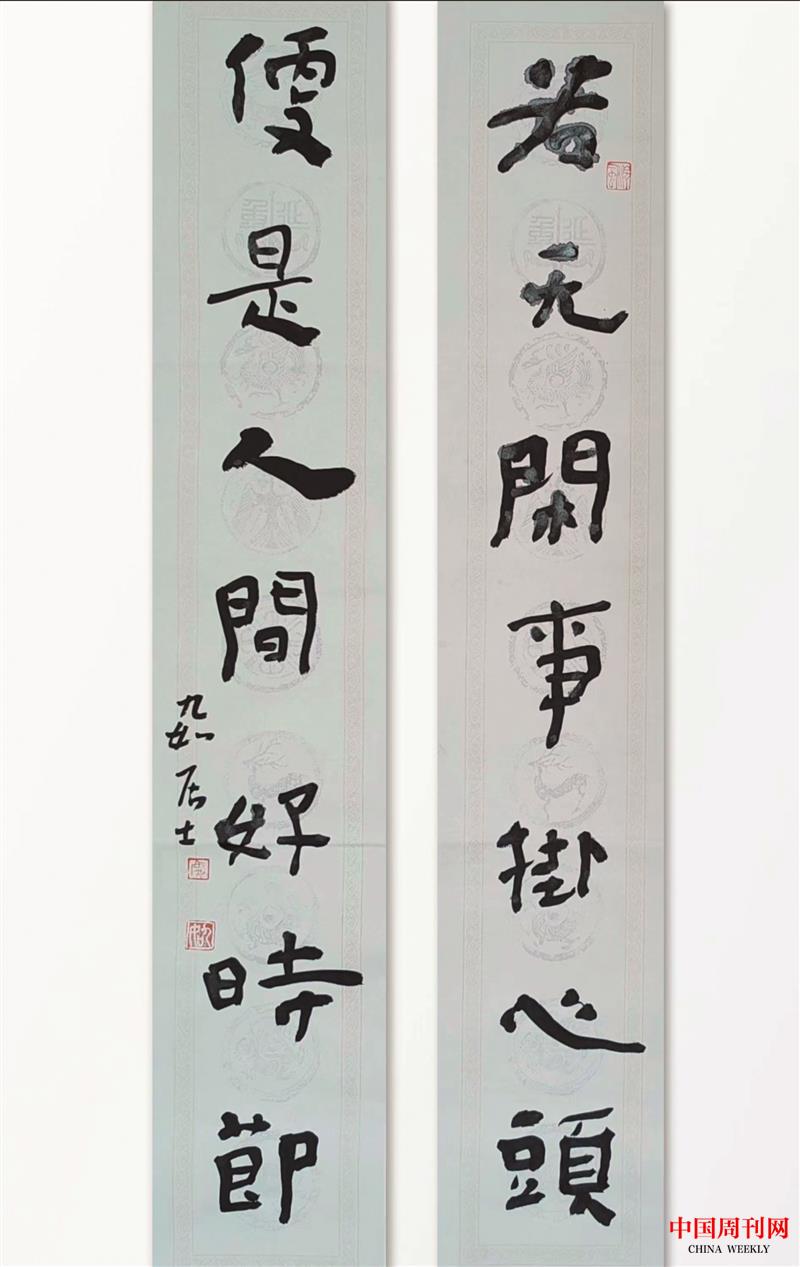 若无閑事掛心頭
便是人間好時節
九如居士
中国周刊网
CHINA WEEKLY